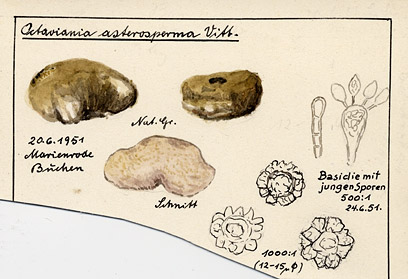 Octaviania asterosperma Vitt.
Nat. Gr.
20.6.1951
Marienrode
Buchen
Schnitt
Basidie mit
jungen Sporen
500:1
24.6.51.
1000:1
(12-15µ φ)